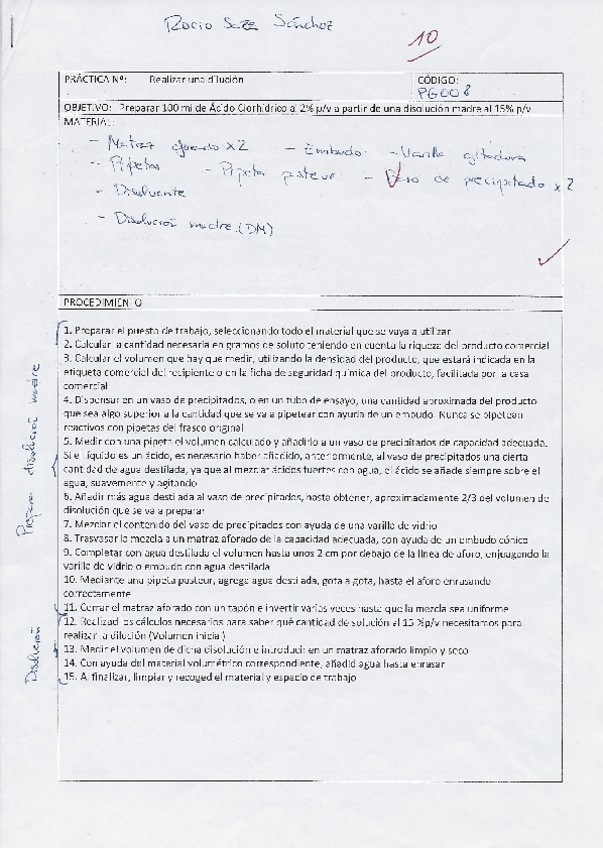 Rocio Saez Sánchez
10
PRÁCTICA Nº: Realizar una dilución
CÓDIGO:
PG008
OBJETIVO: Preparar 100 ml de Ácido Clorhídrico al 2% p/v a partir de una disolución madre al 15% p/v
MATERIAL:
- Matraz aforado x2 - Embudo - Varilla agitadora
- Pipetas - Pipeta pasteur - Vaso de precipitado x 2
- Disolvente
- Disolución madre (DM)
PROCEDIMIENTO
1. Preparar el puesto de trabajo, seleccionando todo el material que se vaya a utilizar
2. Calcular la cantidad necesaria en gramos de soluto teniendo en cuenta la riqueza del producto comercial
3. Calcular el volumen que hay que medir, utilizando la densidad del producto, que estará indicada en la
etiqueta comercial del recipiente o en la ficha de seguridad química del producto, facilitada por la casa
comercial
4. Dispensar en un vaso de precipitados, o en un tubo de ensayo, una cantidad aproximada del producto
que sea algo superior a la cantidad que se va a pipetear con ayuda de un embudo. Nunca se pipetean
reactivos con pipetas del frasco original
5. Medir con una pipeta el volumen calculado y añadirlo a un vaso de precipitados de capacidad adecuada.
Si el líquido es un ácido, es necesario haber añadido, anteriormente, al vaso de precipitados una cierta
cantidad de agua destilada, ya que al mezclar ácidos fuertes con agua, el ácido se añade siempre sobre el
agua, suavemente y agitando
6. Añadir más agua destilada al vaso de precipitados, hasta obtener, aproximadamente 2/3 del volumen de
disolución que se va a preparar
7. Mezclar el contenido del vaso de precipitados con ayuda de una varilla de vidrio
8. Trasvasar la mezcla a un matraz aforado de la capacidad adecuada, con ayuda de un embudo cónico
9. Completar con agua destilada el volumen hasta unos 2 cm por debajo de la línea de aforo, enjuagando la
varilla de vidrio o embudo con agua destilada
10. Mediante una pipeta pasteur, agrega agua destilada, gota a gota, hasta el aforo enrasando
correctamente
11. Cerrar el matraz aforado con un tapón e invertir varias veces hasta que la mezcla sea uniforme
12. Realizad los cálculos necesarios para saber qué cantidad de solución al 15 %p/v necesitamos para
realizar la dilución (Volumen inicial)
13. Medir el volumen de dicha disolución e introducir en un matraz aforado limpio y seco
14. Con ayuda del material volumétrico correspondiente, añadid agua hasta enrasar
15. Al finalizar, limpiar y recoged el material y espacio de trabajo
Preparar disolución madre
Disolución